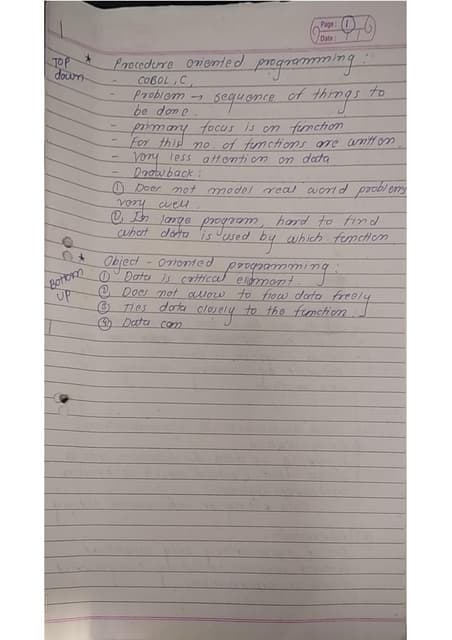 Page: 1
Date:
TOP down * Procedure oriented programming:
- COBOL, C,
- Problem → sequence of things to
be done.
- primary focus is on function
- For this no. of functions are written.
- Very less attention on data
- Drawback:
① Does not model real world problems
very well.
② In large program, hard to find
what data is used by which function.
Bottom UP * Object - oriented programming:
① Data is critical element.
② Does not allow to flow data freely
③ Ties data closely to the function.
④ Data can